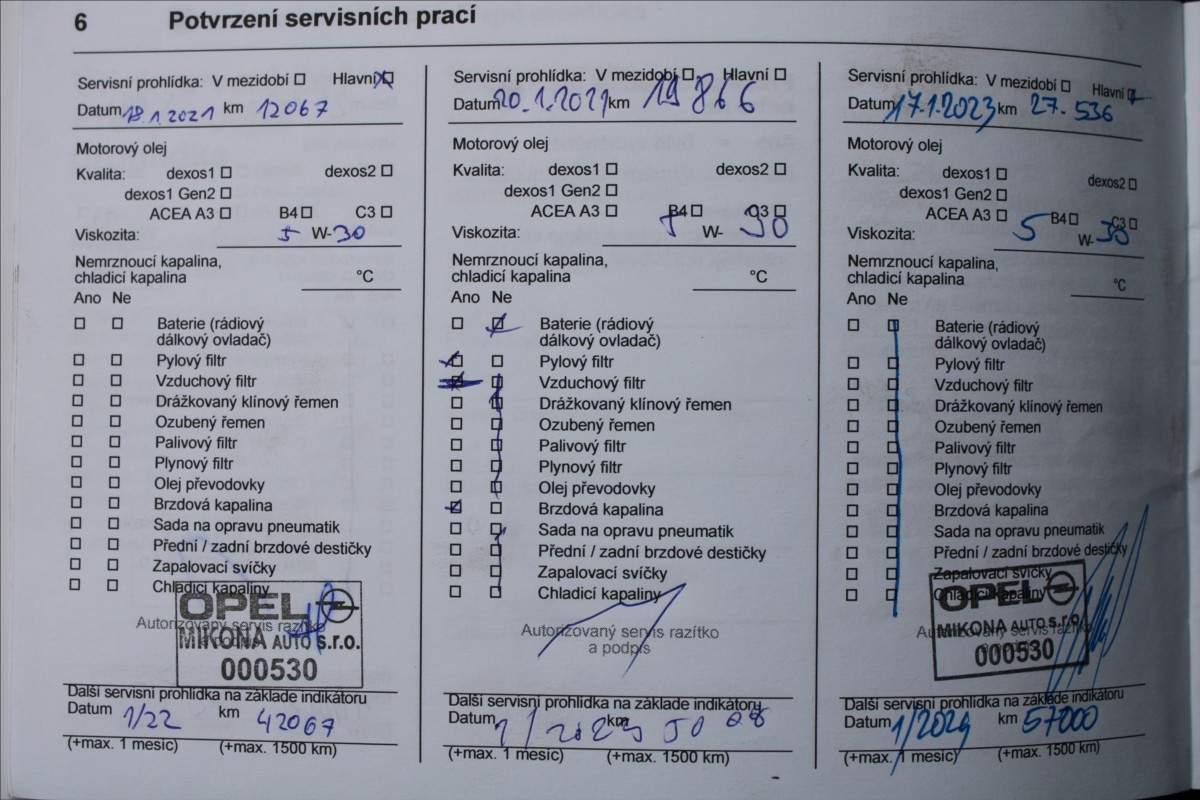 6 Potvrzení servisních prací
Servisní prohlídka: V mezidobí Hlavní
Datum 18.1.2021 km 12067
Motorový olej
Kvalita: dexos1 dexos2
dexos1 Gen2
ACEA A3 B4 C3
Viskozita: 5 W-30
Nemrznoucí kapalina,
chladicí kapalina °C
Ano Ne
Baterie (rádiový
dálkový ovladač)
Pylový filtr
Vzduchový filtr
Drážkovaný klínový řemen
Ozubený řemen
Palivový filtr
Plynový filtr
Olej převodovky
Brzdová kapalina
Sada na opravu pneumatik
Přední / zadní brzdové destičky
Zapalovací svíčky
Chladicí kapaliny
OPEL
Autorizovaný servis razítko
MIKONA AUTO s.r.o.
000530
Další servisní prohlídka na základě indikátoru
Datum 1/22 km 42067
(+max. 1 měsíc) (+max. 1500 km)
Servisní prohlídka: V mezidobí Hlavní
Datum 20.1.2021 km 19866
Motorový olej
Kvalita: dexos1 dexos2
dexos1 Gen2
ACEA A3 B4 C3
Viskozita: W- 30
Nemrznoucí kapalina,
chladicí kapalina °C
Ano Ne
Baterie (rádiový
dálkový ovladač)
Pylový filtr
Vzduchový filtr
Drážkovaný klínový řemen
Ozubený řemen
Palivový filtr
Plynový filtr
Olej převodovky
Brzdová kapalina
Sada na opravu pneumatik
Přední / zadní brzdové destičky
Zapalovací svíčky
Chladicí kapaliny
Autorizovaný servis razítko
a podpis
Další servisní prohlídka na základě indikátoru
Datum km
(+max. 1 měsíc) (+max. 1500 km)
Servisní prohlídka: V mezidobí Hlavní
Datum 17.1.2023 km 27.536
Motorový olej
Kvalita: dexos1 dexos2
dexos1 Gen2
ACEA A3 B4 C3
Viskozita: 5 W-30
Nemrznoucí kapalina,
chladicí kapalina °C
Ano Ne
Baterie (rádiový
dálkový ovladač)
Pylový filtr
Vzduchový filtr
Drážkovaný klínový řemen
Ozubený řemen
Palivový filtr
Plynový filtr
Olej převodovky
Brzdová kapalina
Sada na opravu pneumatik
Přední / zadní brzdové destičky
Zapalovací svíčky
Chladicí kapaliny
OPEL
Autorizovaný servis razítko
MIKONA AUTO s.r.o.
000530
Další servisní prohlídka na základě indikátoru
Datum 1/2024 km 57000
(+max. 1 měsíc) (+max. 1500 km)